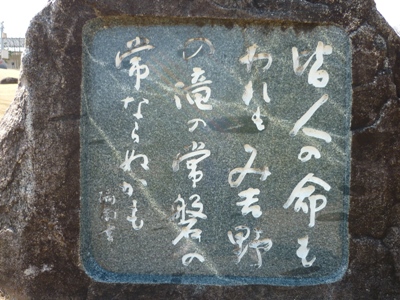 皆人の命も
われもみ吉野
の滝の常磐の
常ならぬかも